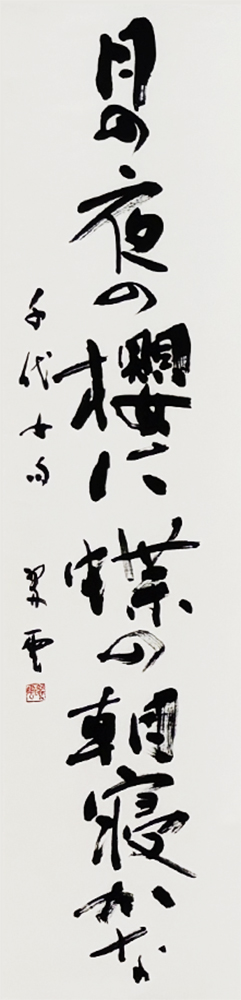 月の夜の櫻に蝶の朝寝かな
千代女句 翠雲